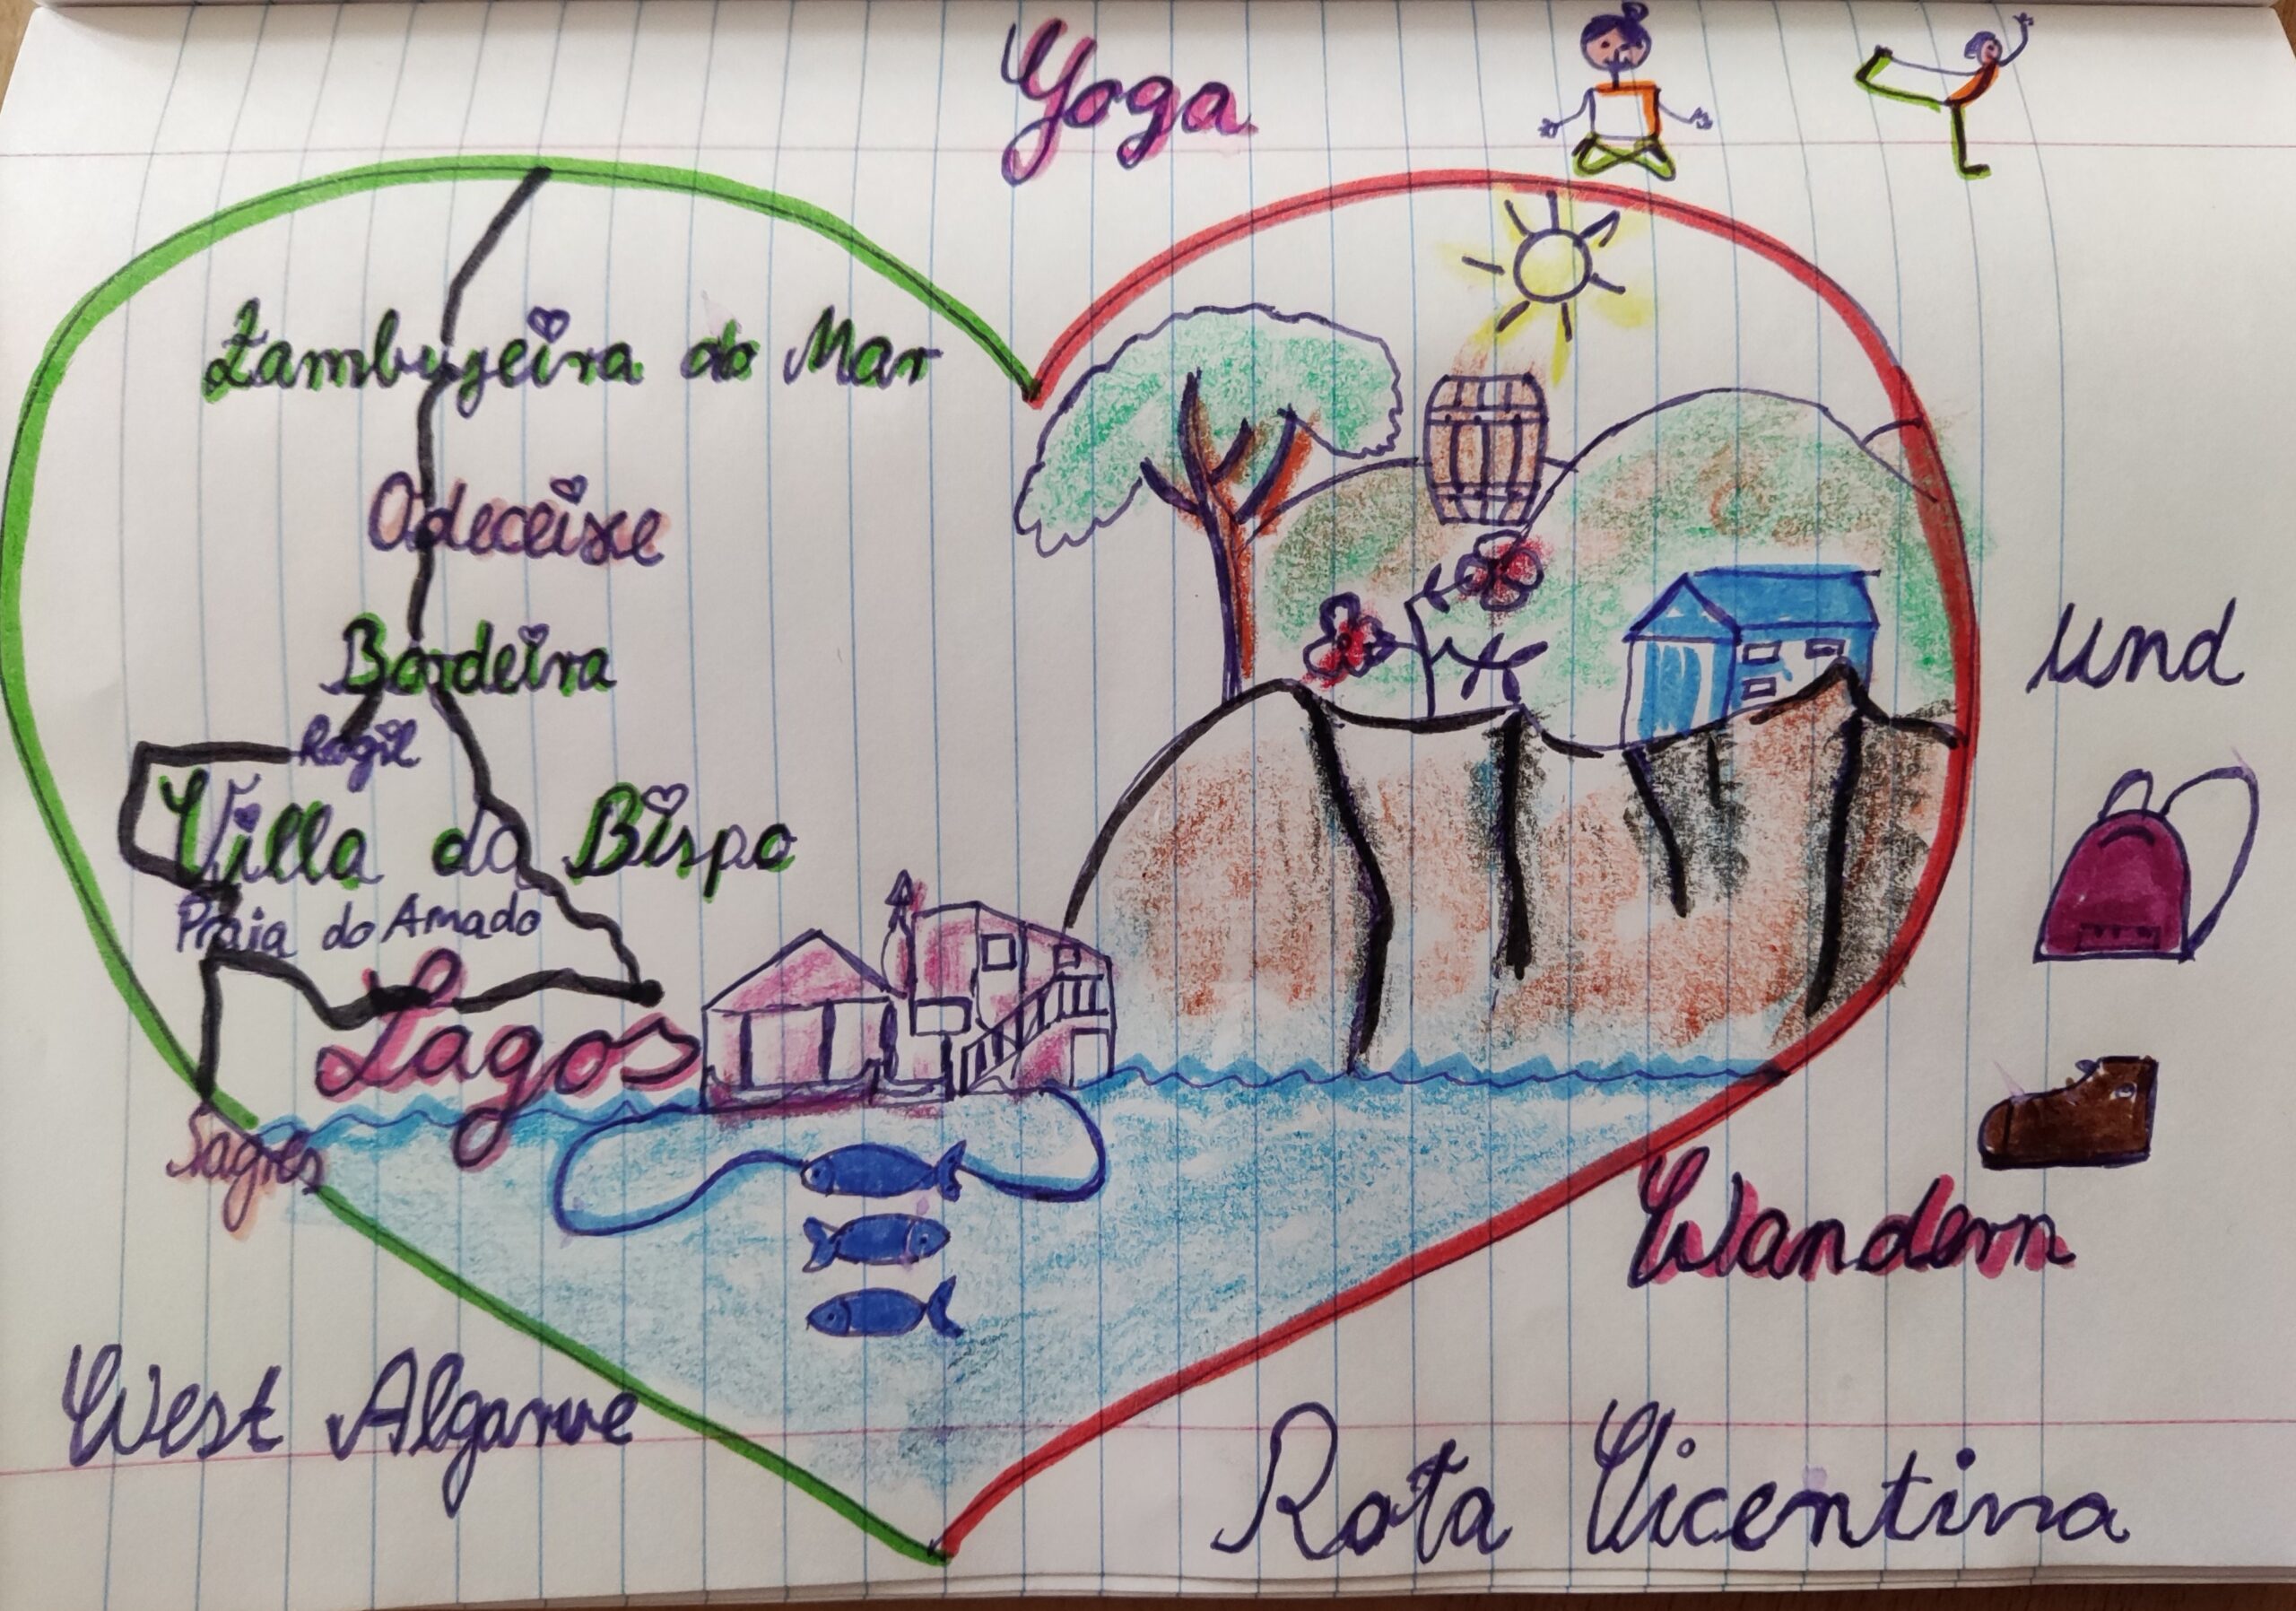 Yoga
Zambujeira do Mar
Odeceixe
Bordeira
Rogil
Villa da Bispo
Praia do Amado
Lagos
Sagres
und
Wandern
West Algarve
Rota Vicentina